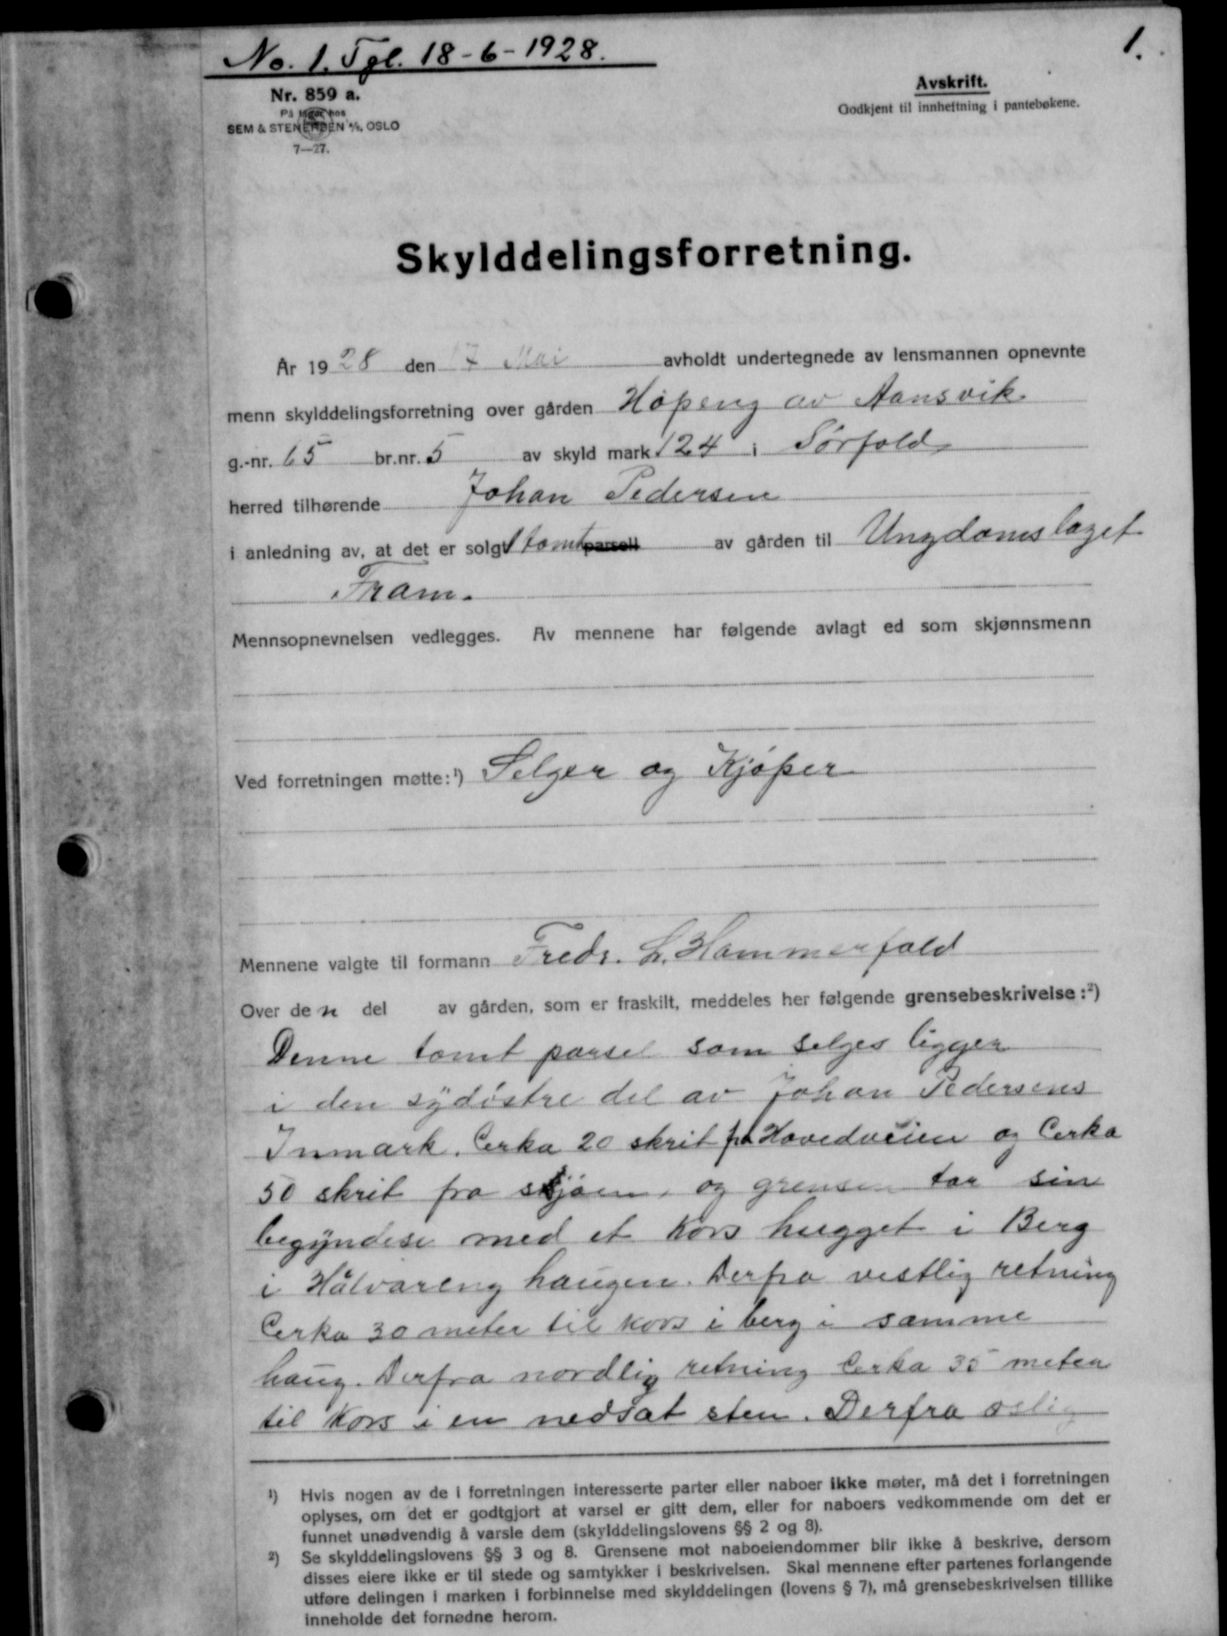 No. 1. Tgl. 18-6-1928.
1.
Nr. 859 a.
På lager hos
SEM & STENERSEN A/S, OSLO
7—27.
Avskrift.
Godkjent til innheftning i pantebøkene.
Skylddelingsforretning.
År 1928 den 17 Mai avholdt undertegnede av lensmannen opnevnte
menn skylddelingsforretning over gården Høpeng av Aansvik
g.-nr. 65 br.nr. 5 av skyld mark 124 i Sørfold
herred tilhørende Johan Pedersen
i anledning av, at det er solgt 1 tomt parsell av gården til Ungdomslaget
Fram.
Mennsopnevnelsen vedlegges. Av mennene har følgende avlagt ed som skjønnsmenn
Ved forretningen møtte:¹) Selger og Kjøper
Mennene valgte til formann Fredr. L. Hammerfald
Over den del av gården, som er fraskilt, meddeles her følgende grensebeskrivelse:²)
Denne tomt parsel som selges ligger
i den sydøstre del av Johan Pedersens
Inmark. Cerka 20 skrit fra Hovedveien og Cerka
50 skrit fra sjøen, og grensen tar sin
begyndese med et Kors hugget i Berg
i Hålvareng haugen. Derfra vestlig retning
Cerka 30 meter til kors i berg i samme
haug. Derfra nordlig retning Cerka 35 meter
til Kors i en nedsat sten. Derfra øslig
¹) Hvis nogen av de i forretningen interesserte parter eller naboer ikke møter, må det i forretningen
oplyses, om det er godtgjort at varsel er gitt dem, eller for naboers vedkommende om det er
funnet unødvendig å varsle dem (skylddelingslovens §§ 2 og 8).
²) Se skylddelingslovens §§ 3 og 8. Grensene mot naboeiendommer blir ikke å beskrive, dersom
disses eiere ikke er til stede og samtykker i beskrivelsen. Skal mennene efter partenes forlangende
utføre delingen i marken i forbinnelse med skylddelingen (lovens § 7), må grensebeskrivelsen tillike
inneholde det fornødne herom.